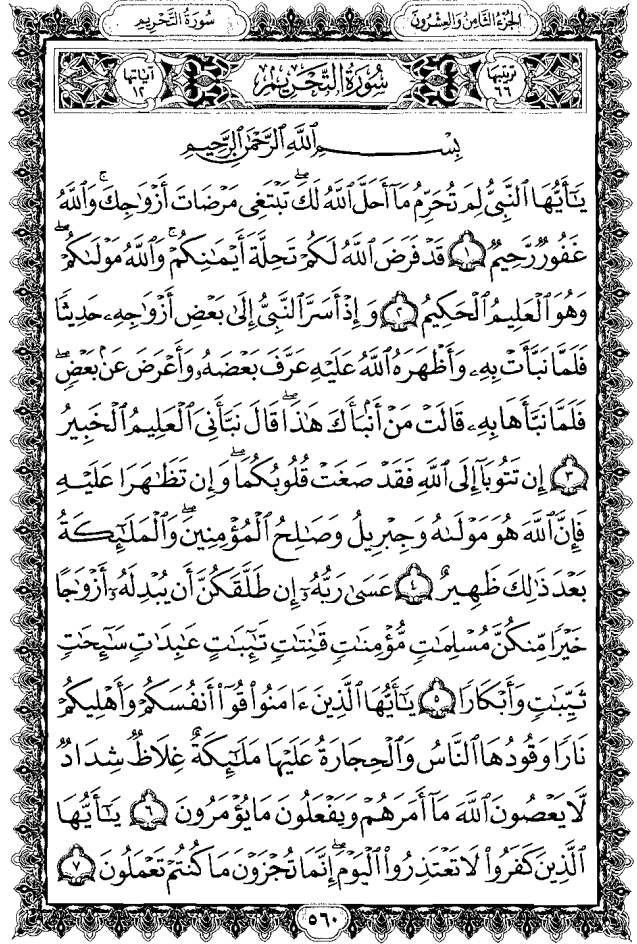 سُورَةُ التَّحْرِيمِ الجُزْءُ الثَّامِنُ وَالعِشْرُونَ
ترتيبها ٦٦ سُورَةُ التَّحْرِيمِ آياتها ١٢
بِسْمِ اللَّهِ الرَّحْمَٰنِ الرَّحِيمِ
يَٰٓأَيُّهَا ٱلنَّبِيُّ لِمَ تُحَرِّمُ مَآ أَحَلَّ ٱللَّهُ لَكَۖ تَبْتَغِى مَرْضَاتَ أَزْوَٰجِكَۚ وَٱللَّهُ
غَفُورٌ رَّحِيمٌ ١ قَدْ فَرَضَ ٱللَّهُ لَكُمْ تَحِلَّةَ أَيْمَٰنِكُمْۚ وَٱللَّهُ مَوْلَىٰكُمْۖ
وَهُوَ ٱلْعَلِيمُ ٱلْحَكِيمُ ٢ وَإِذْ أَسَرَّ ٱلنَّبِيُّ إِلَىٰ بَعْضِ أَزْوَٰجِهِۦ حَدِيثًا
فَلَمَّا نَبَّأَتْ بِهِۦ وَأَظْهَرَهُ ٱللَّهُ عَلَيْهِ عَرَّفَ بَعْضَهُۥ وَأَعْرَضَ عَنۢ بَعْضٍۖ
فَلَمَّا نَبَّأَهَا بِهِۦ قَالَتْ مَنْ أَنۢبَأَكَ هَٰذَاۖ قَالَ نَبَّأَنِىَ ٱلْعَلِيمُ ٱلْخَبِيرُ
٣ إِن تَتُوبَآ إِلَى ٱللَّهِ فَقَدْ صَغَتْ قُلُوبُكُمَاۖ وَإِن تَظَٰهَرَا عَلَيْهِ
فَإِنَّ ٱللَّهَ هُوَ مَوْلَىٰهُ وَجِبْرِيلُ وَصَٰلِحُ ٱلْمُؤْمِنِينَۖ وَٱلْمَلَٰٓئِكَةُ
بَعْدَ ذَٰلِكَ ظَهِيرٌ ٤ عَسَىٰ رَبُّهُۥٓ إِن طَلَّقَكُنَّ أَن يُبْدِلَهُۥٓ أَزْوَٰجًا
خَيْرًا مِّنكُنَّ مُسْلِمَٰتٍ مُّؤْمِنَٰتٍ قَٰنِتَٰتٍ تَٰٓئِبَٰتٍ عَٰبِدَٰتٍ سَٰٓئِحَٰتٍ
ثَيِّبَٰتٍ وَأَبْكَارًا ٥ يَٰٓأَيُّهَا ٱلَّذِينَ ءَامَنُوا۟ قُوٓا۟ أَنفُسَكُمْ وَأَهْلِيكُمْ
نَارًا وَقُودُهَا ٱلنَّاسُ وَٱلْحِجَارَةُ عَلَيْهَا مَلَٰٓئِكَةٌ غِلَاظٌ شِدَادٌ
لَّا يَعْصُونَ ٱللَّهَ مَآ أَمَرَهُمْ وَيَفْعَلُونَ مَا يُؤْمَرُونَ ٦ يَٰٓأَيُّهَا
ٱلَّذِينَ كَفَرُوا۟ لَا تَعْتَذِرُوا۟ ٱلْيَوْمَۖ إِنَّمَا تُجْزَوْنَ مَا كُنتُمْ تَعْمَلُونَ ٧
٥٦٠